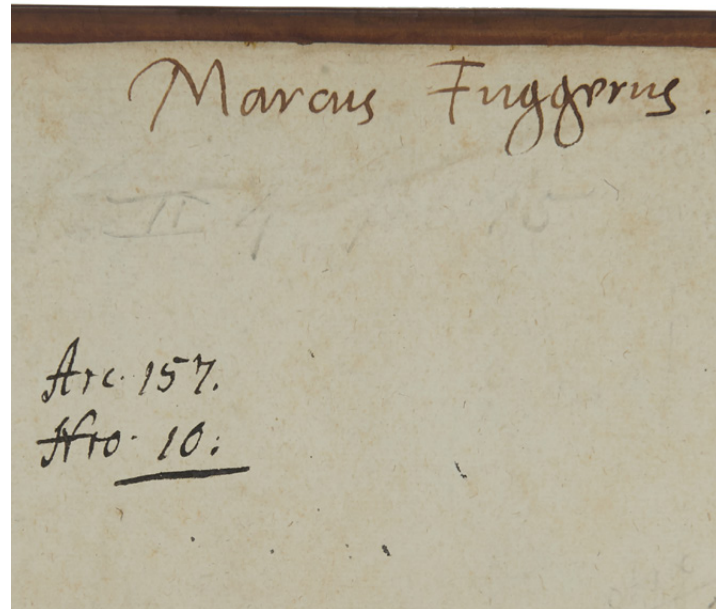 Marcus Fuggerus.
Arc. 157.
Nro. 10: